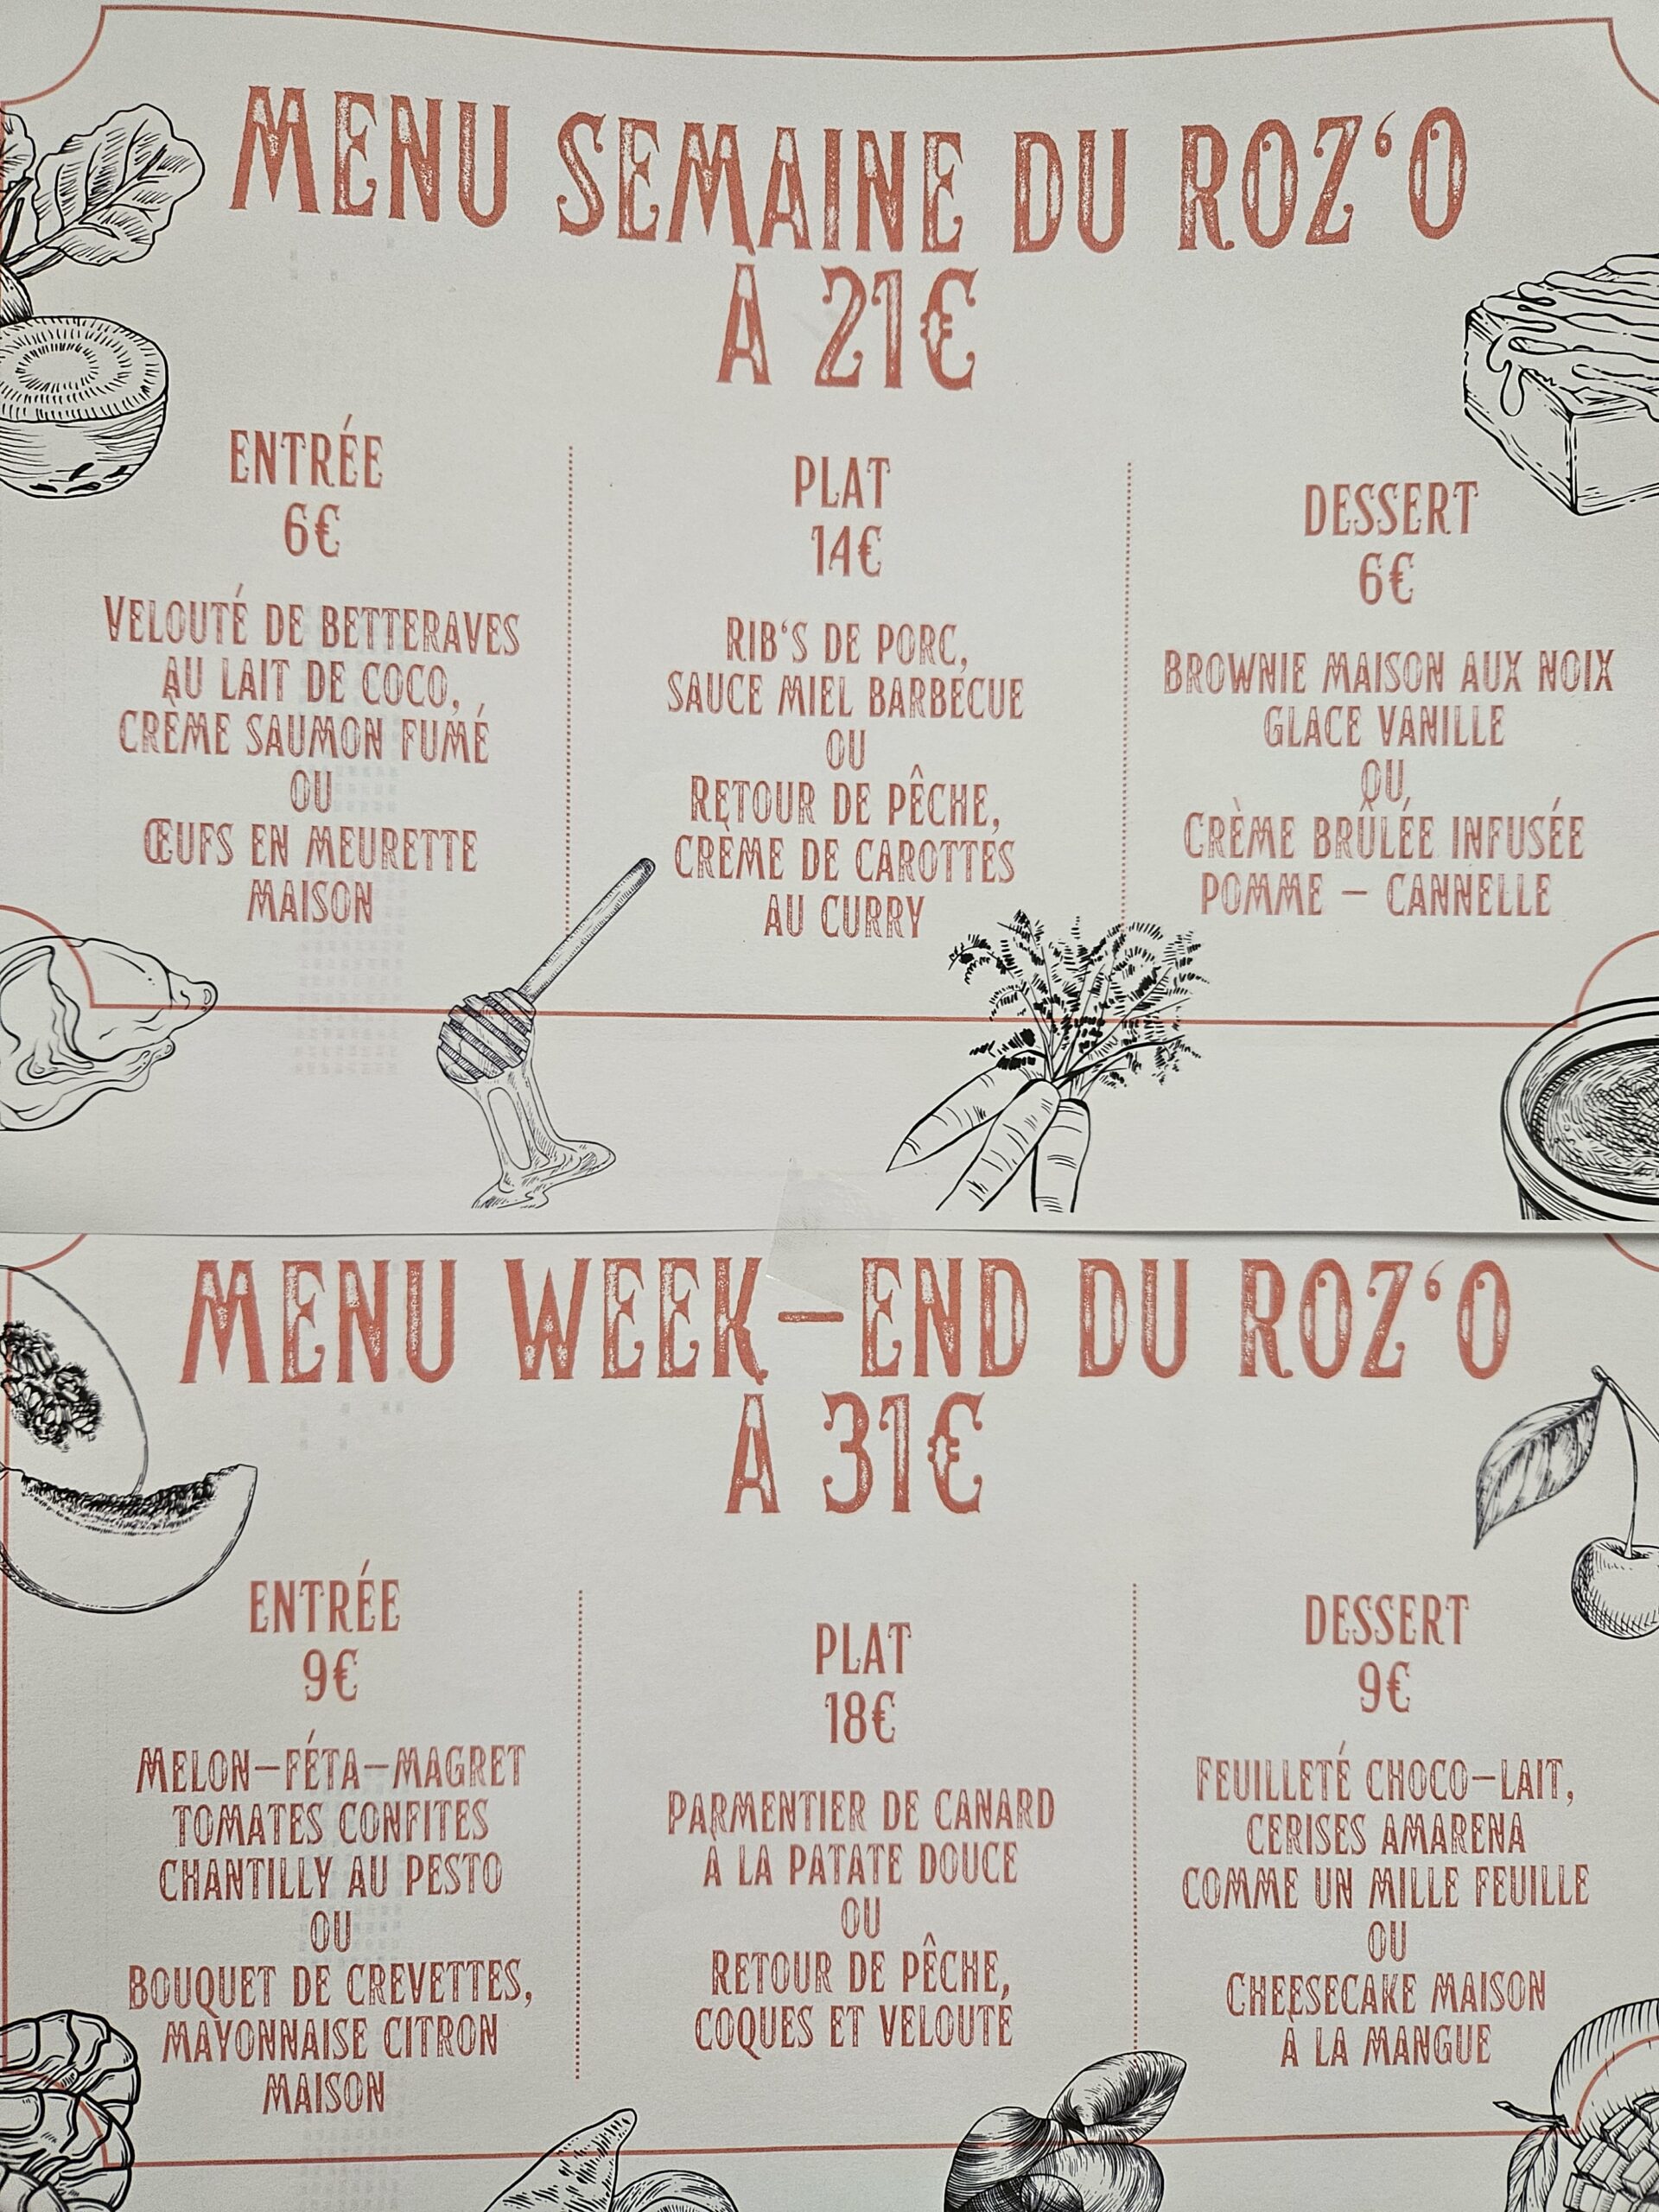 MENU SEMAINE DU ROZ'O
À 21€
ENTRÉE
6€
VELOUTÉ DE BETTERAVES
AU LAIT DE COCO,
CRÈME SAUMON FUMÉ
OU
ŒUFS EN MEURETTE
MAISON
PLAT
14€
RIB'S DE PORC,
SAUCE MIEL BARBECUE
OU
RETOUR DE PÊCHE,
CRÈME DE CAROTTES
AU CURRY
DESSERT
6€
BROWNIE MAISON AUX NOIX
GLACE VANILLE
OU
CRÈME BRÛLÉE INFUSÉE
POMME – CANNELLE
MENU WEEK-END DU ROZ'O
À 31€
ENTRÉE
9€
MELON-FÉTA-MAGRET
TOMATES CONFITES
CHANTILLY AU PESTO
OU
BOUQUET DE CREVETTES,
MAYONNAISE CITRON
MAISON
PLAT
18€
PARMENTIER DE CANARD
À LA PATATE DOUCE
OU
RETOUR DE PÊCHE,
COQUES ET VELOUTE
DESSERT
9€
FEUILLETÉ CHOCO-LAIT,
CERISES AMARENA
COMME UN MILLE FEUILLE
OU
CHEESECAKE MAISON
À LA MANGUE